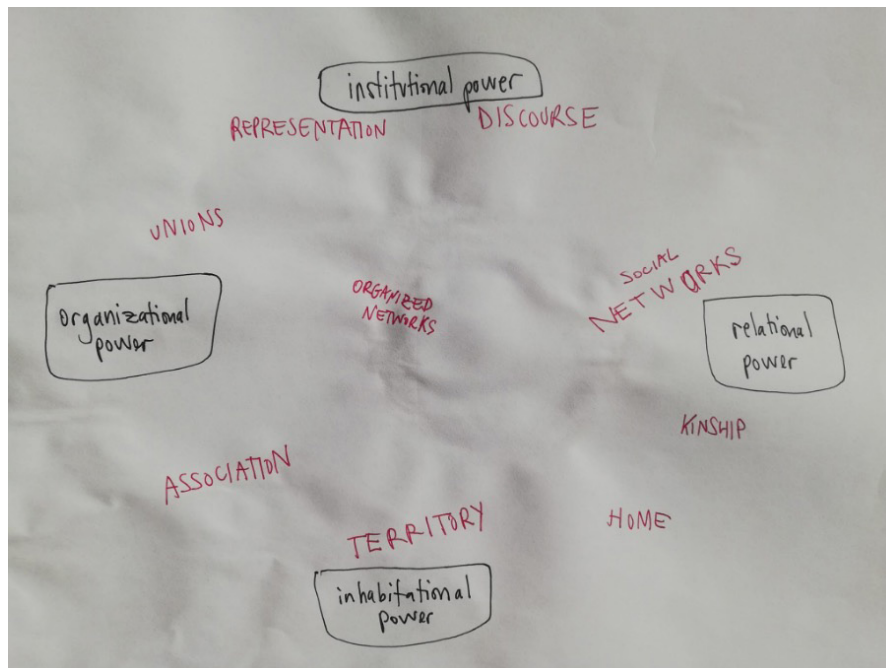 institutional power
REPRESENTATION
DISCOURSE
UNIONS
SOCIAL
NETWORKS
ORGANIZED
NETWORKS
organizational
power
relational
power
KINSHIP
ASSOCIATION
TERRITORY
HOME
inhabitational
power